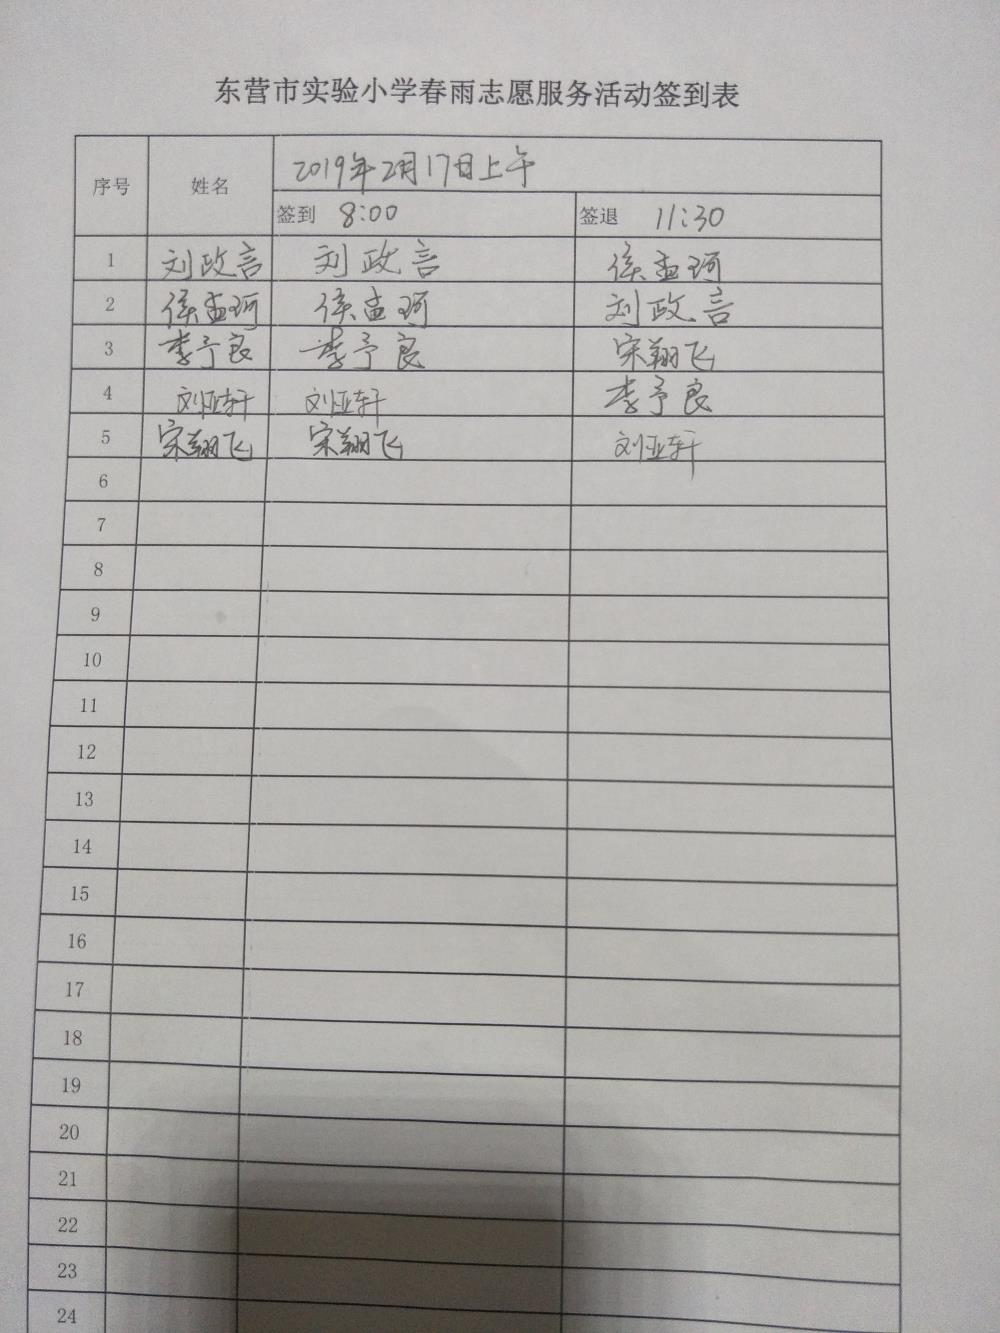 东营市实验小学春雨志愿服务活动签到表
序号 姓名 2019年2月17日上午
签到 8:00 签退 11:30
1 刘政言 刘政言 侯孟珂
2 侯孟珂 侯孟珂 刘政言
3 李予良 李予良 宋翔飞
4 刘亚轩 刘亚轩 李予良
5 宋翔飞 宋翔飞 刘亚轩
6
7
8
9
10
11
12
13
14
15
16
17
18
19
20
21
22
23
24